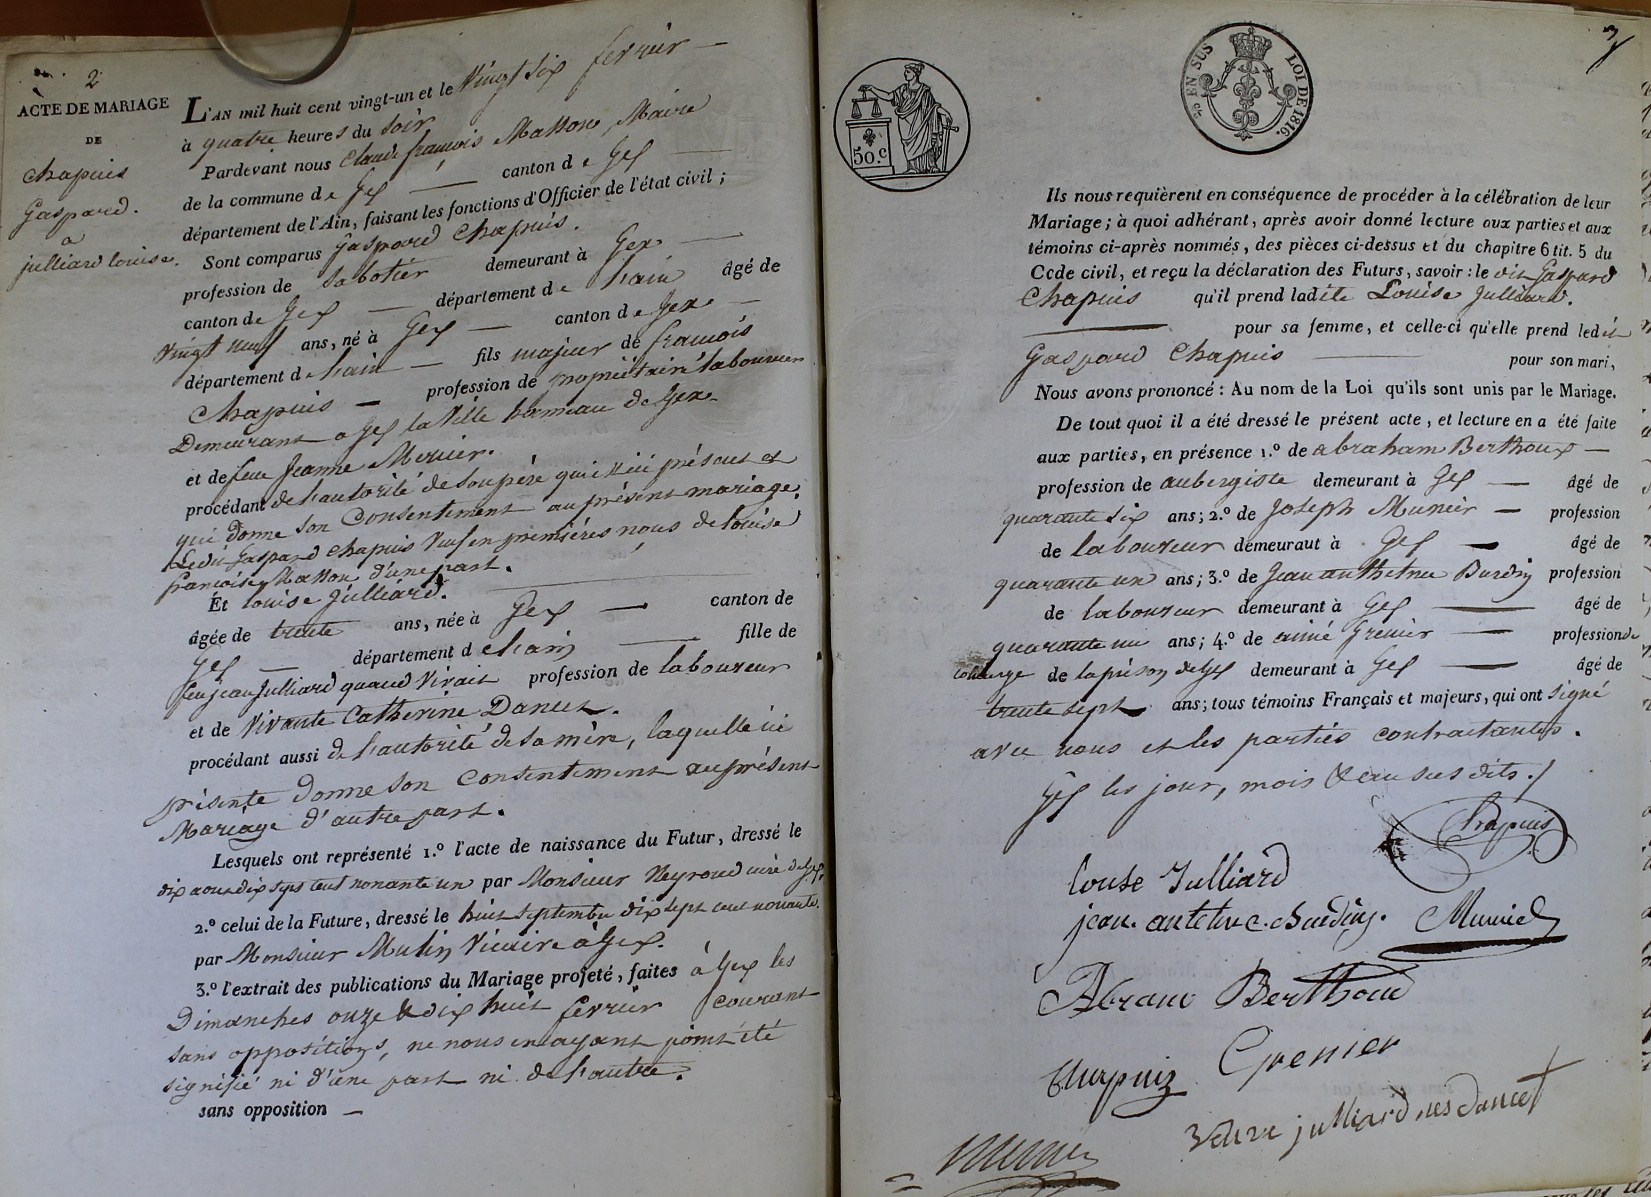 2
ACTE DE MARIAGE
DE
Chapuis
Gaspard.
a
julliard louise.
L'AN mil huit cent vingt-un et le vingt six fevrier
à quatre heures du soir
Pardevant nous Claude françois Masson, Maire
de la commune de Gex canton de Gex
département de l'Ain, faisant les fonctions d'Officier de l'état civil ;
Sont comparus Gaspard Chapuis.
profession de Sabotier demeurant à Gex
canton de Gex département de l'ain âgé de
vingt neuf ans, né à Gex canton de Gex
département de l'ain fils majeur de francois
Chapuis profession de propriétaire laboureur
Demeurant a Gex la Ville hameau de Gex
et de feue Jeanne Mercier.
procédant de l'autorité de son père qui est ici présent et
qui donne son Consentement au présent mariage.
Ledit Gaspard Chapuis Veuf en premières nous de louise
françoise Masson d'une part.
Et louise Julliard.
âgée de trente ans, née à Gex canton de
Gex département de l'ain fille de
feu jean Julliard quand vivait profession de laboureur
et de vivante Catherine Dancet.
procédant aussi de l'autorité de sa mère, laquelle ici
présente Donne son Consentement au présent
Mariage d'autre part.
Lesquels ont représenté 1.º l'acte de naissance du Futur, dressé le
dix aout dix sept cent nonante un par Monsieur Neyroud curé de Gex,
2.º celui de la Future, dressé le huit septembre dix sept cent nonante.
par Monsieur Mulin Vicaire à Gex.
3.º l'extrait des publications du Mariage projeté, faites à Gex les
Dimanches onze & dix huit fevrier courant
sans oppositions, ne nous en ayant point été
signifié ni d'une part ni de l'autre.
sans opposition
50.c
EN SUS
LOI DE 1816.
Ils nous requièrent en conséquence de procéder à la célébration de leur
Mariage ; à quoi adhérant, après avoir donné lecture aux parties et aux
témoins ci-après nommés, des pièces ci-dessus et du chapitre 6 tit. 5 du
Code civil, et reçu la déclaration des Futurs, savoir : le dit Gaspard
Chapuis qu'il prend ladite Louise Julliard.
pour sa femme, et celle-ci qu'elle prend ledit
Gaspard Chapuis pour son mari,
Nous avons prononcé : Au nom de la Loi qu'ils sont unis par le Mariage.
De tout quoi il a été dressé le présent acte, et lecture en a été faite
aux parties, en présence 1.º de abraham Berthoux
profession de aubergiste demeurant à Gex âgé de
quarante six ans ; 2.º de Joseph Munier profession
de laboureur demeuraut à Gex âgé de
quarante un ans ; 3.º de Jean anthelme Burdin profession
de laboureur demeurant à Gex âgé de
quarante un ans ; 4.º de aimé Grenier profession de
concierge de la prison de Gex demeurant à Gex âgé de
trente sept ans ; tous témoins Français et majeurs, qui ont signé
avec nous et les parties contractantes.
Gex les jour, mois & an sus dits ./
Chapuis
louise Julliard
jean antelme Burdin. Munier
Abram Berthoud
Chapuiz Grenier
veuve julliard nes dancet